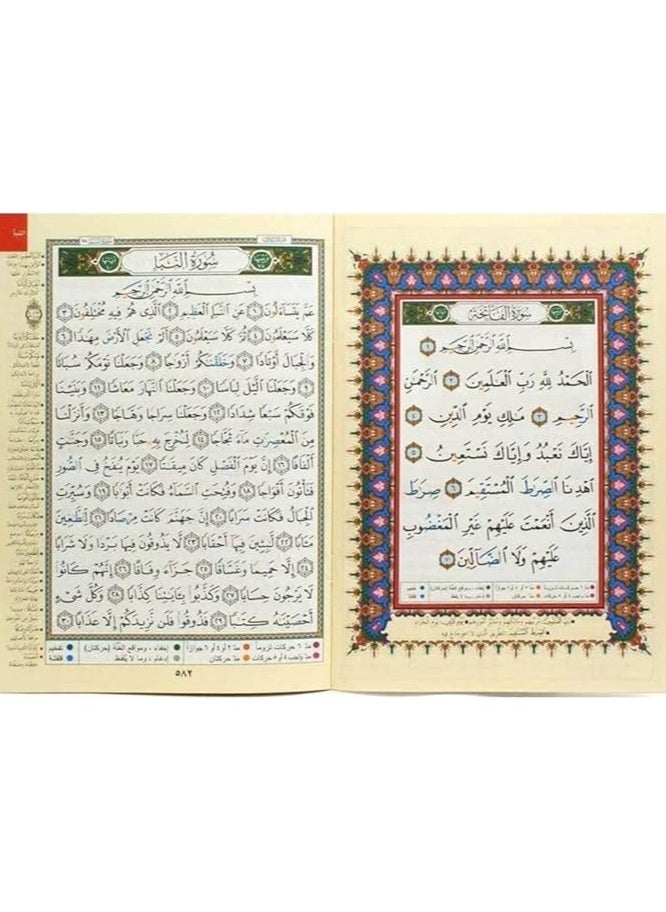 سورة الفاتحة
بِسْمِ اللَّهِ الرَّحْمَٰنِ الرَّحِيمِ ١
الْحَمْدُ لِلَّهِ رَبِّ الْعَالَمِينَ ٢ الرَّحْمَٰنِ
الرَّحِيمِ ٣ مَالِكِ يَوْمِ الدِّينِ ٤
إِيَّاكَ نَعْبُدُ وَإِيَّاكَ نَسْتَعِينُ ٥
اهْدِنَا الصِّرَاطَ الْمُسْتَقِيمَ ٦ صِرَاطَ
الَّذِينَ أَنْعَمْتَ عَلَيْهِمْ غَيْرِ الْمَغْضُوبِ
عَلَيْهِمْ وَلَا الضَّالِّينَ ٧
النبأ
سورة النبأ
بِسْمِ اللَّهِ الرَّحْمَٰنِ الرَّحِيمِ
عَمَّ يَتَسَاءَلُونَ ١ عَنِ النَّبَإِ الْعَظِيمِ ٢ الَّذِي هُمْ فِيهِ مُخْتَلِفُونَ ٣
كَلَّا سَيَعْلَمُونَ ٤ ثُمَّ كَلَّا سَيَعْلَمُونَ ٥ أَلَمْ نَجْعَلِ الْأَرْضَ مِهَادًا ٦
وَالْجِبَالَ أَوْتَادًا ٧ وَخَلَقْنَاكُمْ أَزْوَاجًا ٨ وَجَعَلْنَا نَوْمَكُمْ سُبَاتًا
٩ وَجَعَلْنَا اللَّيْلَ لِبَاسًا ١٠ وَجَعَلْنَا النَّهَارَ مَعَاشًا ١١ وَبَنَيْنَا
فَوْقَكُمْ سَبْعًا شِدَادًا ١٢ وَجَعَلْنَا سِرَاجًا وَهَّاجًا ١٣ وَأَنْزَلْنَا
مِنَ الْمُعْصِرَاتِ مَاءً ثَجَّاجًا ١٤ لِنُخْرِجَ بِهِ حَبًّا وَنَبَاتًا ١٥ وَجَنَّاتٍ
أَلْفَافًا ١٦ إِنَّ يَوْمَ الْفَصْلِ كَانَ مِيقَاتًا ١٧ يَوْمَ يُنْفَخُ فِي الصُّورِ
فَتَأْتُونَ أَفْوَاجًا ١٨ وَفُتِحَتِ السَّمَاءُ فَكَانَتْ أَبْوَابًا ١٩ وَسُيِّرَتِ
الْجِبَالُ فَكَانَتْ سَرَابًا ٢٠ إِنَّ جَهَنَّمَ كَانَتْ مِرْصَادًا ٢١ لِلطَّاغِينَ
مَآبًا ٢٢ لَابِثِينَ فِيهَا أَحْقَابًا ٢٣ لَا يَذُوقُونَ فِيهَا بَرْدًا وَلَا شَرَابًا
٢٤ إِلَّا حَمِيمًا وَغَسَّاقًا ٢٥ جَزَاءً وِفَاقًا ٢٦ إِنَّهُمْ كَانُوا
لَا يَرْجُونَ حِسَابًا ٢٧ وَكَذَّبُوا بِآيَاتِنَا كِذَّابًا ٢٨ وَكُلَّ شَيْءٍ
أَحْصَيْنَاهُ كِتَابًا ٢٩ فَذُوقُوا فَلَنْ نَزِيدَكُمْ إِلَّا عَذَابًا ٣٠
مدّ ٦ حركات لزوماً مدّ ٢ أو ٤ أو ٦ جوازاً إخفاء، ومواقع الغنّة (حركتان) تفخيم
مدّ واجب ٤ أو ٥ حركات مدّ حركتان إدغام، وما لا يلفظ قلقلة
٥٨٢